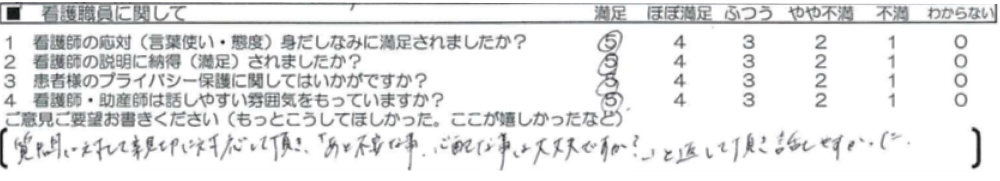 ■ 看護職員に関して 満足 ほぼ満足 ふつう やや不満 不満 わからない
1 看護師の応対（言葉使い・態度）身だしなみに満足されましたか？ 5 4 3 2 1 0
2 看護師の説明に納得（満足）されましたか？ 5 4 3 2 1 0
3 患者様のプライバシー保護に関してはいかがですか？ 5 4 3 2 1 0
4 看護師・助産師は話しやすい雰囲気をもっていますか？ 5 4 3 2 1 0
ご意見ご要望お書きください（もっとこうしてほしかった。ここが嬉しかったなど）
質問に対して親切に対応して頂き、「あと不安な事、ご心配な事は大丈夫ですか？」と返して頂き話しやすかった。